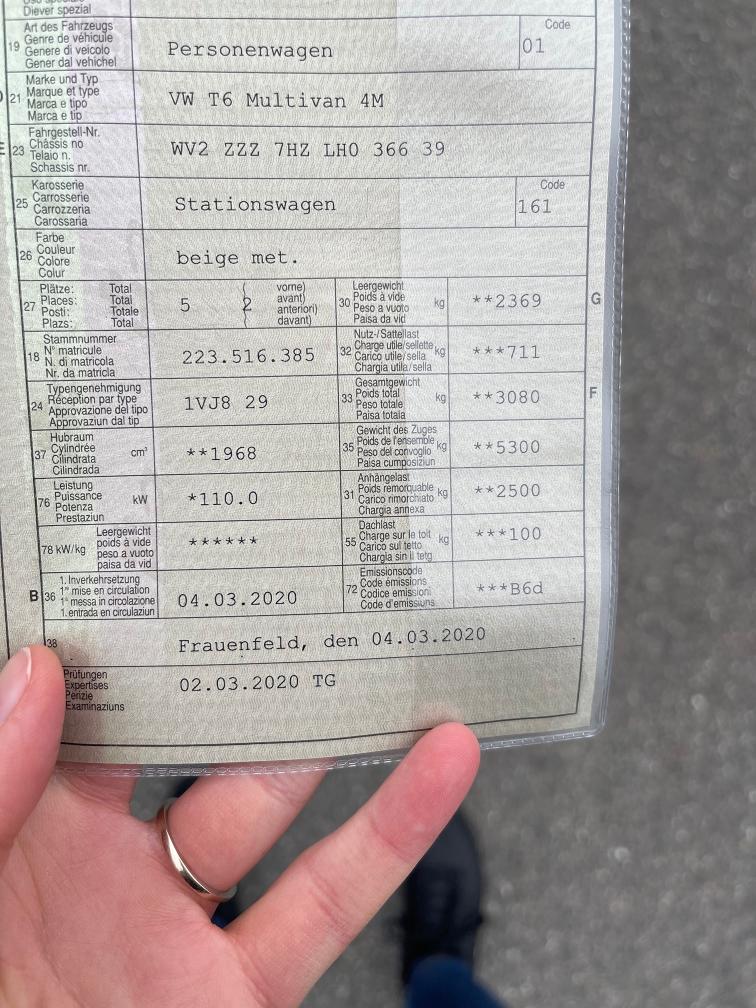 Diever spezial
Art des Fahrzeugs
19 Genre de véhicule
Genere di veicolo
Gener dal vehichel
Personenwagen
Code
01
Marke und Typ
21 Marque et type
Marca e tipo
Marca e tip
VW T6 Multivan 4M
Fahrgestell-Nr.
E 23 Châssis no
Telaio n.
Schassis nr.
WV2 ZZZ 7HZ LH0 366 39
Karosserie
25 Carrosserie
Carrozzeria
Carossaria
Stationswagen
Code
161
Farbe
26 Couleur
Colore
Colur
beige met.
27 Plätze: Total
Places: Total
Posti: Totale
Plazs: Total
5 2 vorne)
avant)
anteriori)
davant)
Leergewicht
30 Poids à vide kg
Peso a vuoto
Paisa da vid
**2369 G
Stammnummer
18 N° matricule
N. di matricola
Nr. da matricla
223.516.385
Nutz-/Sattellast
32 Charge utile/sellette kg
Carico utile/sella
Chargia utila/sella
***711
Typengenehmigung
24 Réception par type
Approvazione del tipo
Approvaziun dal tip
1VJ8 29
Gesamtgewicht
33 Poids total kg
Peso totale
Paisa totala
**3080 F
Hubraum
37 Cylindrée cm³
Cilindrata
Cilindrada
**1968
Gewicht des Zuges
35 Poids de l'ensemble kg
Peso del convoglio
Paisa cumposiziun
**5300
Leistung
76 Puissance kW
Potenza
Prestaziun
*110.0
Anhängelast
31 Poids remorquable kg
Carico rimorchiato
Chargia annexa
**2500
78 kW/kg Leergewicht
poids à vide
peso a vuoto
paisa da vid
******
Dachlast
55 Charge sur le toit kg
Carico sul tetto
Chargia sin il tetg
***100
B 36 1. Inverkehrsetzung
1re mise en circulation
1a messa in circolazione
1. entrada en circulaziun
04.03.2020
Emissionscode
72 Code émissions
Codice emissioni
Code d'emissiuns
***B6d
38 Frauenfeld, den 04.03.2020
Prüfungen
Expertises
Perizie
Examinaziuns
02.03.2020 TG